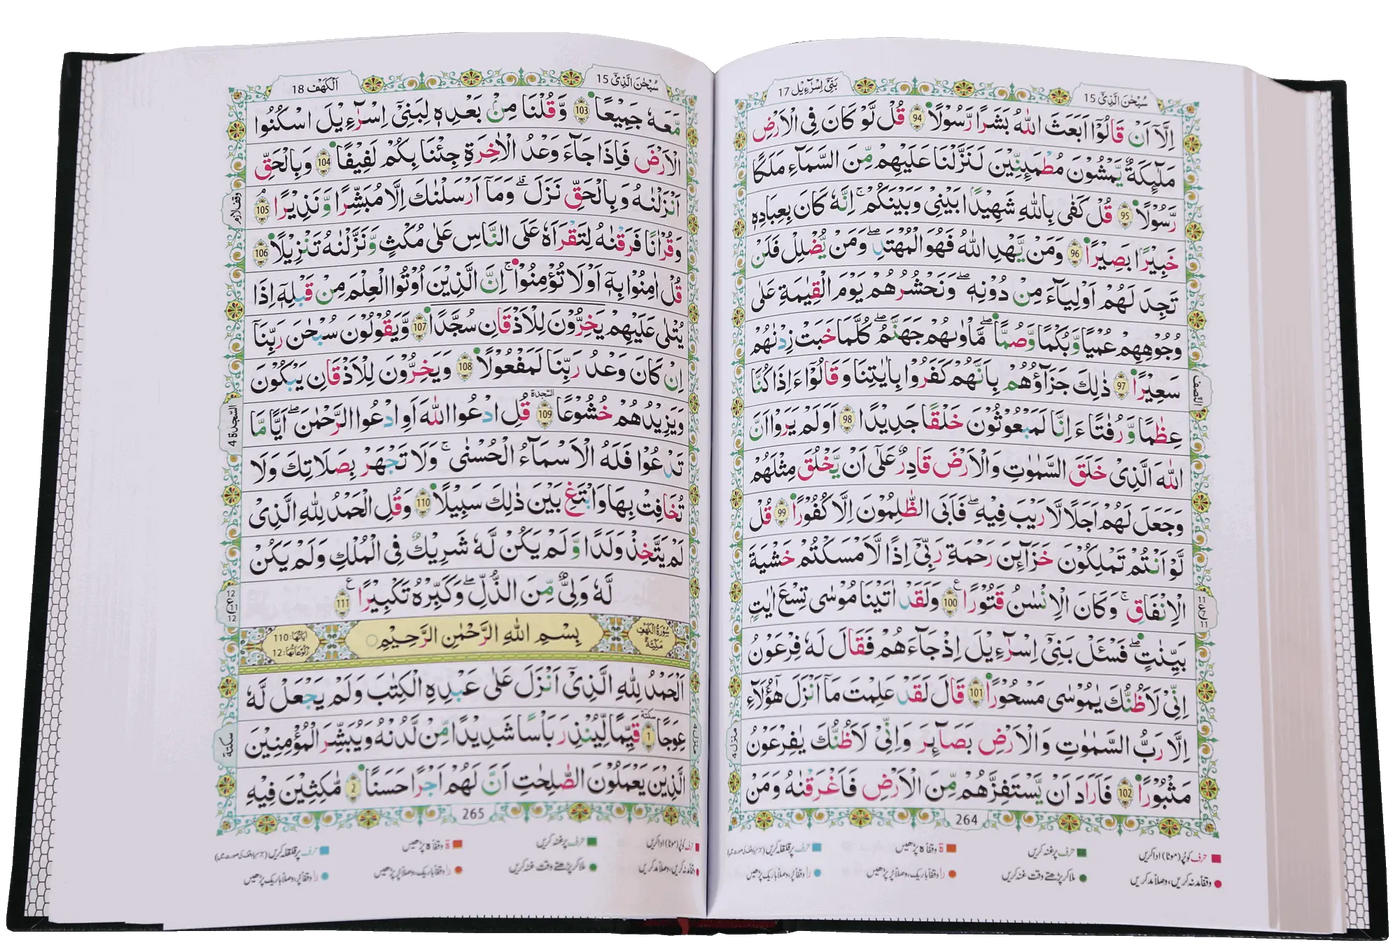 سُبْحٰنَ الَّذِیْۤ 15
بَنِیْۤ اِسْرَآءِیْل 17
اِلَّاۤ اَنْ قَالُوْۤا اَبَعَثَ اللّٰهُ بَشَرًا رَّسُوْلًا 94 قُلْ لَّوْ كَانَ فِی الْاَرْضِ
مَلٰٓىِٕكَةٌ یَّمْشُوْنَ مُطْمَىِٕنِّیْنَ لَنَزَّلْنَا عَلَیْهِمْ مِّنَ السَّمَآءِ مَلَكًا
رَّسُوْلًا 95 قُلْ كَفٰی بِاللّٰهِ شَهِیْدًۢا بَیْنِیْ وَبَیْنَكُمْ ؕ اِنَّهٗ كَانَ بِعِبَادِهٖ
خَبِیْرًۢا بَصِیْرًا 96 وَمَنْ یَّهْدِ اللّٰهُ فَهُوَ الْمُهْتَدِ ۚ وَمَنْ یُّضْلِلْ فَلَنْ
تَجِدَ لَهُمْ اَوْلِیَآءَ مِنْ دُوْنِهٖ ؕ وَنَحْشُرُهُمْ یَوْمَ الْقِیٰمَةِ عَلٰی
وُجُوْهِهِمْ عُمْیًا وَّبُكْمًا وَّصُمًّا ؕ مَاْوٰىهُمْ جَهَنَّمُ ؕ كُلَّمَا خَبَتْ زِدْنٰهُمْ
سَعِیْرًا 97 ذٰلِكَ جَزَآؤُهُمْ بِاَنَّهُمْ كَفَرُوْا بِاٰیٰتِنَا وَقَالُوْۤا ءَاِذَا كُنَّا
عِظٰمًا وَّرُفَاتًا ءَاِنَّا لَمَبْعُوْثُوْنَ خَلْقًا جَدِیْدًا 98 اَوَلَمْ یَرَوْا اَنَّ
اللّٰهَ الَّذِیْ خَلَقَ السَّمٰوٰتِ وَالْاَرْضَ قَادِرٌ عَلٰۤی اَنْ یَّخْلُقَ مِثْلَهُمْ
وَجَعَلَ لَهُمْ اَجَلًا لَّا رَیْبَ فِیْهِ ؕ فَاَبَی الظّٰلِمُوْنَ اِلَّا كُفُوْرًا 99 قُلْ
لَّوْ اَنْتُمْ تَمْلِكُوْنَ خَزَآىِٕنَ رَحْمَةِ رَبِّیْۤ اِذًا لَّاَمْسَكْتُمْ خَشْیَةَ
الْاِنْفَاقِ ؕ وَكَانَ الْاِنْسٰنُ قَتُوْرًا 100 وَلَقَدْ اٰتَیْنَا مُوْسٰی تِسْعَ اٰیٰتٍۭ
بَیِّنٰتٍ فَسْـَٔلْ بَنِیْۤ اِسْرَآءِیْلَ اِذْ جَآءَهُمْ فَقَالَ لَهٗ فِرْعَوْنُ
اِنِّیْ لَاَظُنُّكَ یٰمُوْسٰی مَسْحُوْرًا 101 قَالَ لَقَدْ عَلِمْتَ مَاۤ اَنْزَلَ هٰۤؤُلَآءِ
اِلَّا رَبُّ السَّمٰوٰتِ وَالْاَرْضِ بَصَآىِٕرَ ۚ وَاِنِّیْ لَاَظُنُّكَ یٰفِرْعَوْنُ
مَثْبُوْرًا 102 فَاَرَادَ اَنْ یَّسْتَفِزَّهُمْ مِّنَ الْاَرْضِ فَاَغْرَقْنٰهُ وَمَنْ
النصف
منزل ٤
264
حرف کو پُر (موٹا) ادا کریں
حرف پر غنہ کریں
ۃ وقفاً ہ پڑھیں
حرف پر قلقلہ کریں
وقفاً مد نہ کریں، وصلاً مد کریں
ملا کر پڑھتے وقت غنہ کریں
را وقفاً باریک، وصلاً پُر پڑھیں
را وقفاً پُر، وصلاً باریک پڑھیں
سُبْحٰنَ الَّذِیْۤ 15
اَلْكَهْف 18
مَّعَهٗ جَمِیْعًا 103 وَّقُلْنَا مِنْۢ بَعْدِهٖ لِبَنِیْۤ اِسْرَآءِیْلَ اسْكُنُوا
الْاَرْضَ فَاِذَا جَآءَ وَعْدُ الْاٰخِرَةِ جِئْنَا بِكُمْ لَفِیْفًا 104 وَبِالْحَقِّ
اَنْزَلْنٰهُ وَبِالْحَقِّ نَزَلَ ؕ وَمَاۤ اَرْسَلْنٰكَ اِلَّا مُبَشِّرًا وَّنَذِیْرًا 105
وَقُرْاٰنًا فَرَقْنٰهُ لِتَقْرَاَهٗ عَلَی النَّاسِ عَلٰی مُكْثٍ وَّنَزَّلْنٰهُ تَنْزِیْلًا 106
قُلْ اٰمِنُوْا بِهٖۤ اَوْ لَا تُؤْمِنُوْا ؕ اِنَّ الَّذِیْنَ اُوْتُوا الْعِلْمَ مِنْ قَبْلِهٖۤ اِذَا
یُتْلٰی عَلَیْهِمْ یَخِرُّوْنَ لِلْاَذْقَانِ سُجَّدًا 107 وَّیَقُوْلُوْنَ سُبْحٰنَ رَبِّنَاۤ
اِنْ كَانَ وَعْدُ رَبِّنَا لَمَفْعُوْلًا 108 وَیَخِرُّوْنَ لِلْاَذْقَانِ یَبْكُوْنَ
وَیَزِیْدُهُمْ خُشُوْعًا 109 السجدة قُلِ ادْعُوا اللّٰهَ اَوِ ادْعُوا الرَّحْمٰنَ ؕ اَیًّا مَّا
تَدْعُوْا فَلَهُ الْاَسْمَآءُ الْحُسْنٰی ۚ وَلَا تَجْهَرْ بِصَلَاتِكَ وَلَا
تُخَافِتْ بِهَا وَابْتَغِ بَیْنَ ذٰلِكَ سَبِیْلًا 110 وَقُلِ الْحَمْدُ لِلّٰهِ الَّذِیْ
لَمْ یَتَّخِذْ وَلَدًا وَّلَمْ یَكُنْ لَّهٗ شَرِیْكٌ فِی الْمُلْكِ وَلَمْ یَكُنْ
لَّهٗ وَلِیٌّ مِّنَ الذُّلِّ وَكَبِّرْهُ تَكْبِیْرًا 111
سُوْرَةُ الْكَهْفِ مَكِّیَّةٌ
بِسْمِ اللّٰهِ الرَّحْمٰنِ الرَّحِیْمِ
اٰیَاتُهَا: 110
رُكُوْعَاتُهَا: 12
اَلْحَمْدُ لِلّٰهِ الَّذِیْۤ اَنْزَلَ عَلٰی عَبْدِهِ الْكِتٰبَ وَلَمْ یَجْعَلْ لَّهٗ
عِوَجًا 1 قَیِّمًا لِّیُنْذِرَ بَاْسًا شَدِیْدًا مِّنْ لَّدُنْهُ وَیُبَشِّرَ الْمُؤْمِنِیْنَ
الَّذِیْنَ یَعْمَلُوْنَ الصّٰلِحٰتِ اَنَّ لَهُمْ اَجْرًا حَسَنًا 2 مَّاكِثِیْنَ فِیْهِ
السجدة 4
سكتة
265
حرف کو پُر (موٹا) ادا کریں
حرف پر غنہ کریں
ۃ وقفاً ہ پڑھیں
حرف پر قلقلہ کریں
وقفاً مد نہ کریں، وصلاً مد کریں
ملا کر پڑھتے وقت غنہ کریں
را وقفاً باریک، وصلاً پُر پڑھیں
را وقفاً پُر، وصلاً باریک پڑھیں